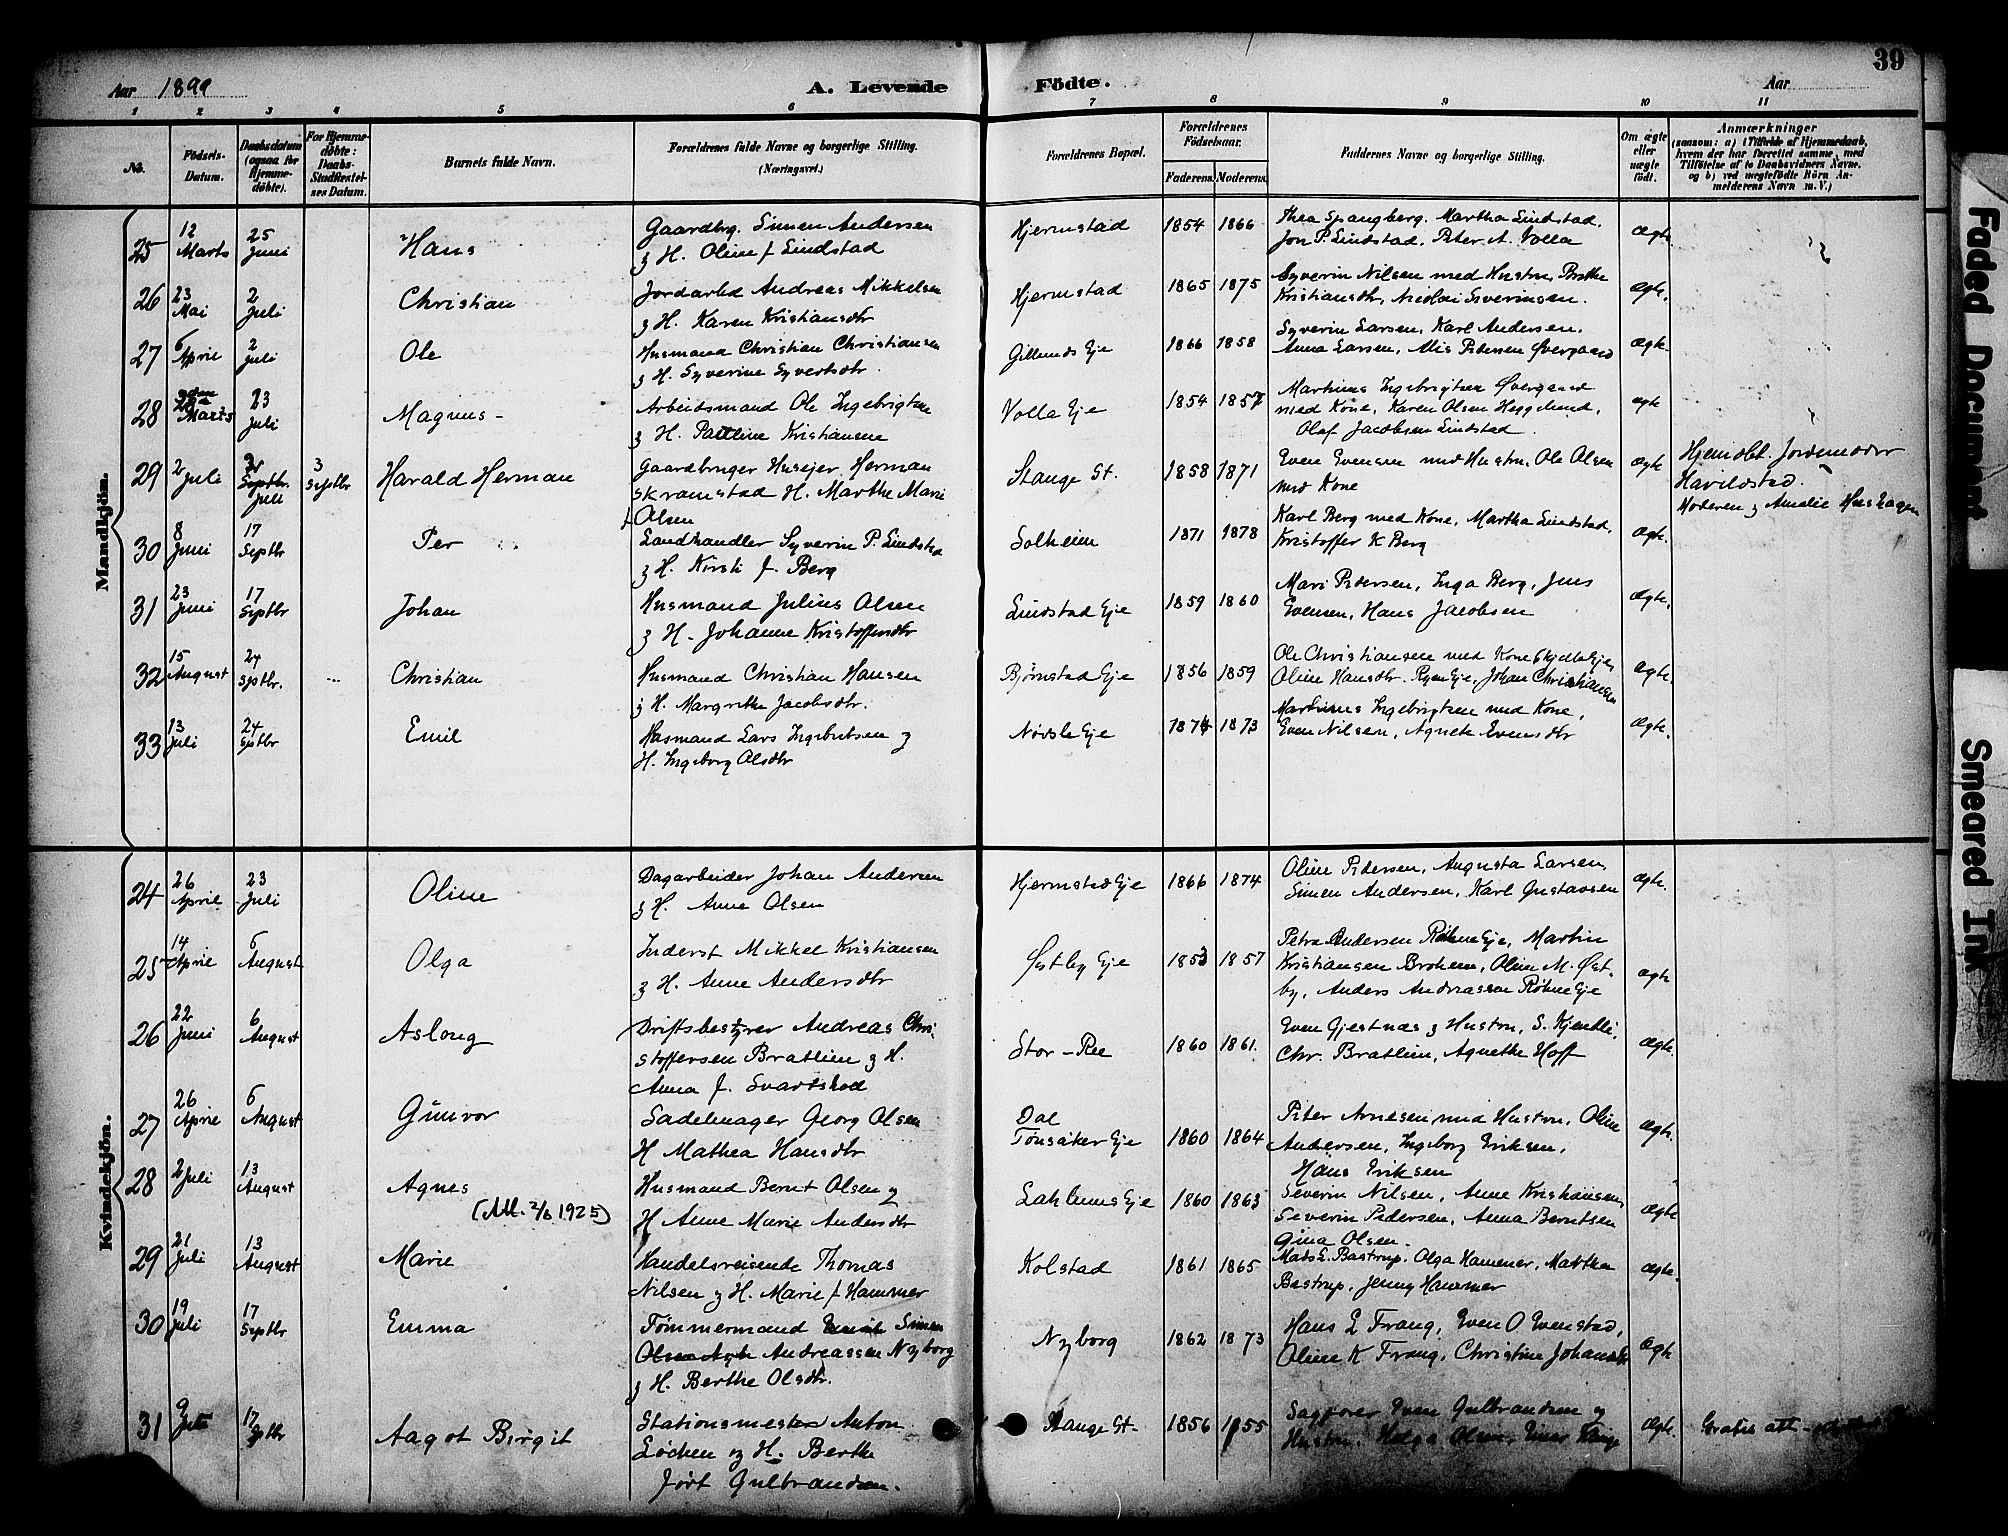 Aar 1899
A. Levende Födte.
Aar
39
1 2 3 4 5 6 7 8 9 10 11
No.
Födsels-Datum.
Daabsdatum (ogsaa for Hjemmedöbte).
For Hjemmedöbte: Daabs-Stadfæstelses Datum.
Barnets fulde Navn.
Forældrenes fulde Navne og borgerlige Stilling. (Næringsvei.)
Forældrenes Bopæl.
Forældrenes Födselsaar.
Faderens. Moderens.
Faddernes Navne og borgerlige Stilling.
Om ægte eller uægte födt.
Anmærkninger
(saasom: a) i Tilfælde af Hjemmedaab, hvem der har forrettet samme, med Tilföielse af to Daabsvidners Navne, og b) ved uægtefödte Börn Anmelderens Navn m. V.)
Mandkjön.
25 12 Marts 25 Juni Hans
Gaardbrg. Simen Andersen
& H. Oline f Lindstad
Hjermstad 1854 1866
Thea Spangberg. Martha Lindstad.
Jon P. Lindstad. Peter A. Volla
Ægte
26 23 Mai 2 Juli Christian
Jordarbd Andreas Mikkelsen
& H. Karen Kristiansdtr
Hjermstad 1865 1875
Syverin Nilsen med Hustru, Berthe
Kristiansdtr, Nicolai Severinsen.
Ægte.
27 6 April 2 Juli Ole
Husmand Christian Christiansen
& H. Syverine Syvertsdtr
Gillunds Eje 1866 1858
Syverin Larsen, Karl Andersen.
Anna Larsen, Alis Pedersen Øvergaard
Ægte.
28 Marts 23 Juli Magnus -
Arbeidsmand Ole Ingebrigtsen
& H. Pauline Kristiansen
Volla Eje 1854 1857
Martinus Ingebrigtsen Øvergaard
med Kone, Karen Olsen Heggelund,
Olaf Jacobsen Lindstad
ægte
29 2 Juli Juli 3 Septbr Harald Herman
Gaardbruger Husejer Herman
Skramstad H. Marthe Marie
f Olsen
Stange St. 1858 1871
Even Evensen med Hustru, Ole Olsen
med Kone
Ægte
Hjemdbt. Jordemoder
Havildstad.
Moderen & Amalie
30 8 Juni 17 Septbr Per
Landhandler Syverin P. Lindstad
& H. Kirsti f. Berg
Solheim 1871 1878
Karl Berg med Kone, Martha Lindstad,
Kristoffer K Berg
Ægte.
31 23 Juni 17 Septbr Johan
Husmand Julius Olsen
& H. Johanne Kristoffersdtr
Lindstad Eje 1859 1860
Mari Pedersen, Inga Berg, Jens
Evensen, Hans Jacobsen
Ægte.
32 15 August 24 Septbr. Christian
Husmand Christian Hansen
& H. Margrethe Jacobsdtr.
Bjørnstad Eje 1856 1859
Ole Christiansen med Kone
Oline Hansdtr. Ryen Eje, Johan Christiansen
Ægte.
33 13 Juli 24 Septbr Emil
Husmand Lars Ingebretsen &
H. Ingeborg Olsdtr
Nøvsle Eje 1874 1873
Martinus Ingebrigtsen med Kone,
Even Nilsen, Agnete Evensdtr
Ægte.
Kvindekjön.
24 26 April 23 Juli Oline
Dagarbeider Johan Andersen
& H. Anne Olsen
Hjermstad Eje 1866 1874
Oline Pedersen, Augusta Larsen,
Simen Andersen, Karl Gustavsen
Ægte.
25 14 April 6 August Olga
Inderst Mikkel Kristiansen
& H. Anne Andersdtr
Østby Eje 1853 1857
Petra Andersen Røhne Eje, Martin
Kristiansen Brohem, Oline M. Øst-
by, Anders Andreassen Røhne Eje
ægte
26 22 Juni 6 August Aslaug
Driftsbestyrer Andreas Chri-
stoffersen Bratlien & H.
Anna f. Svartstad
Stor-Ree 1860 1861.
Even Gjestnæs & Hustru, S. Kjendli,
Chr. Bratlien, Agnethe Hoff
Ægte.
27 26 April 6 August Gunvor
Sadelmager Georg Olsen
H Mathea Hansdtr
Dal
Tønsåker Eje 1860 1864
Peter Arnesen med Hustru, Oline
Andersen, Ingeborg Eriksen,
Hans Eriksen
Ægte.
28 2 Juli 13 August Agnes
(Att. 2/6 1925)
Husmand Bernt Olsen &
H Anne Marie Andersdtr
Sahlums Eje 1860 1863
Severin Nilsen, Anne Kristiansen,
Severin Pedersen, Anna Berntsen
Gina Olsen.
Ægte
29 21 Juli 13 August Marie
Handelsreisende Thomas
Nilsen & H. Marie f Hammer
Kolstad 1861 1865
Mads L. Bastrup. Olga Hammer, Martha
Bastrup, Jenny Hammer
Ægte.
30 19 Juli 17 Septbr Emma
Tømmermand Simen
Andreassen Nyborg
& H. Berthe Olsdtr.
Nyborg 1862 1873
Hans L Frang, Even O Evenstad,
Oline K Frang, Christine Johansdtr
Ægte
31 9 17 Septbr Aagot Birgit
Stationsmester Anton
Løchen og H. Berthe
født Gulbrandsen.
Stange St. 1856 1855
Sagfører Even Gulbrandsen &
Hustru, Helga Olsen, Einar
Ægte.
Gratis att.
Faded Document
Smeared Ink